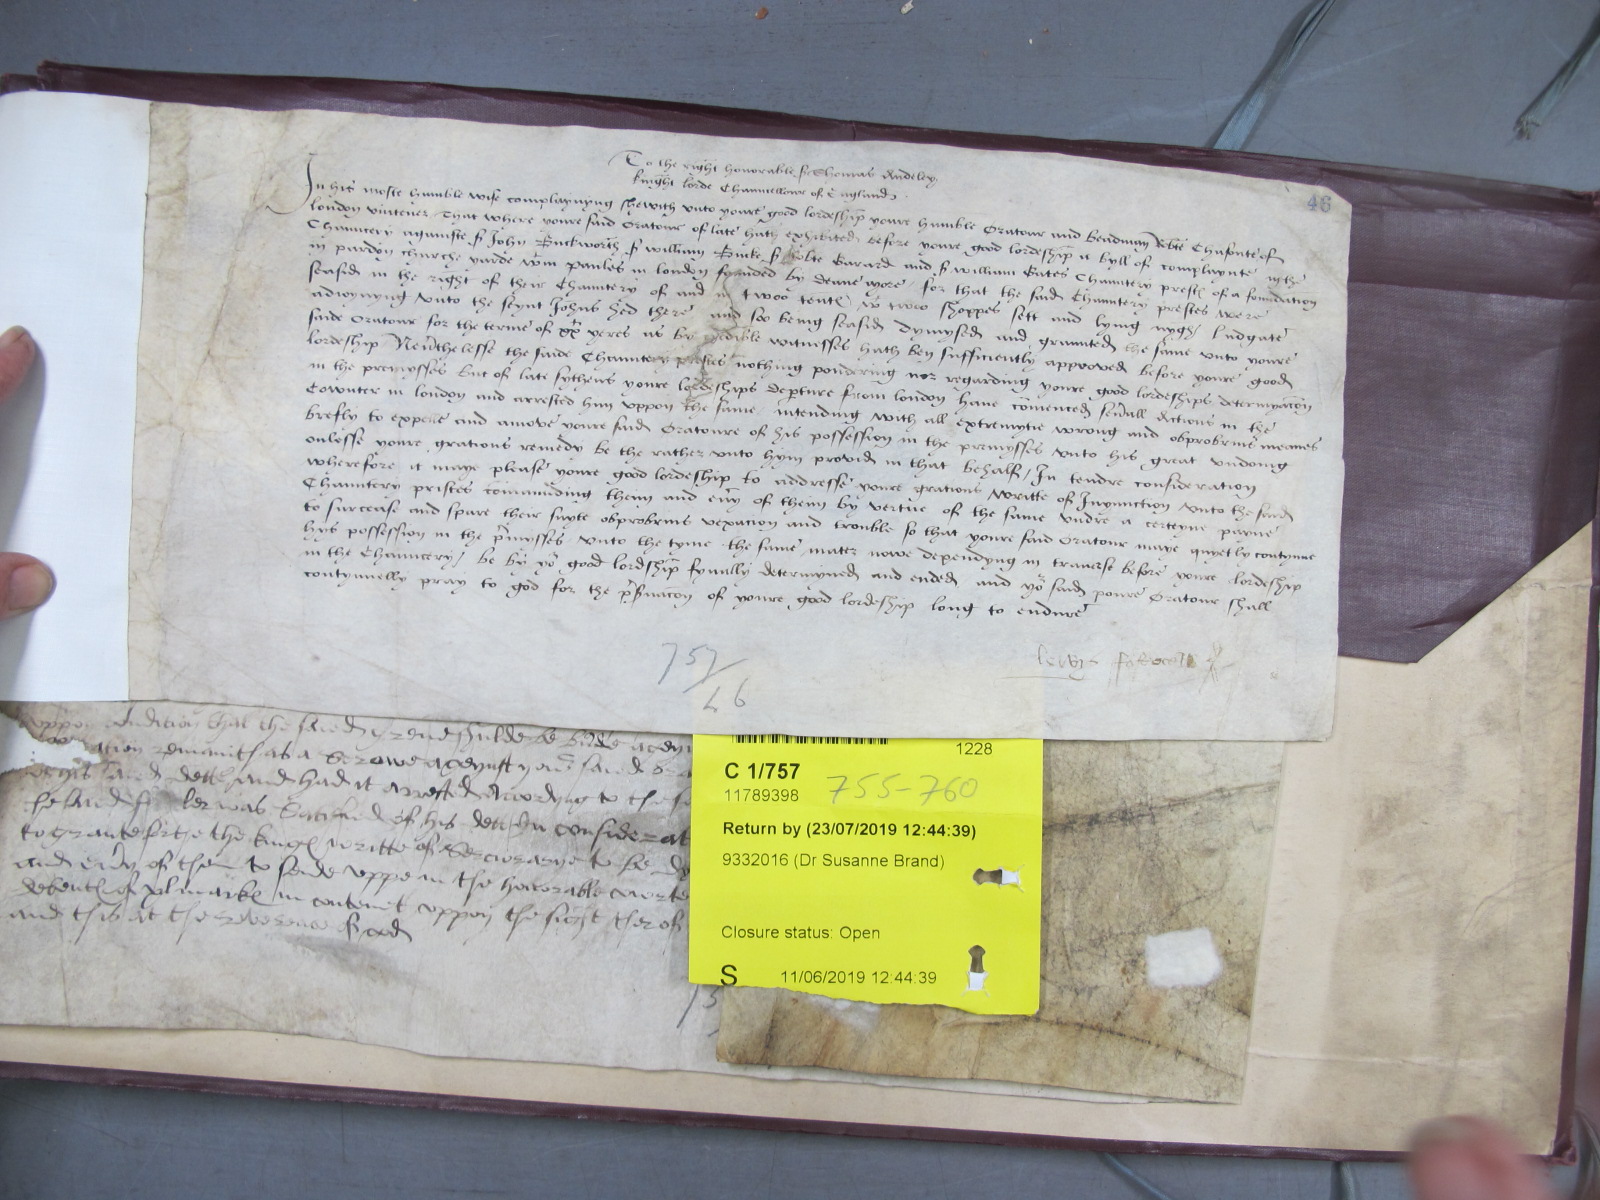 46
To the right honorable sr Thomas Audeley
knight lorde Chauncellour of England
In his moste humble wise complaynyng shewith vnto youre good lordeship youre humble Oratour and beadman Robt Chafonte of
london vintener That where youre said Oratour of late hath exhibited before youre good lordeship a byll of complaynte in the
Chauncery agaynste sr John Buckworth sr William sr Garard and sr William Gates Chauntery prestes of a foundation
in pardon churche yarde wtin paules in london founded by deane more for that the said Chauntery prestes were
seased in the right of their Chauntery of and in twoo tentes wt twoo shoppes sett and lying nygh ludgate
adioynyng vnto the seynt Johns hed there and soo being seased dymysed and graunted the same vnto youre
saide Oratour for the terme of xx yeres as by credible witnesses hath ben sufficiently approved before youre good
lordeship Neuthelesse the saide Chauntery pristes nothing pondering nor regarding youre good lordeships determynacon
in the premysses but of late sythens youre lordeships departure from london haue comenced seuall Actions in the
Cownter in london and arrested him vppon the same intending with all extremytie wrong and obprobrius meanes
brefly to expelle and amove youre said Oratoure of his possession in the premysses vnto his great vndoing
onlesse youre gratious remedy be the rather vnto hym provided in that behalf / In tendre consideration
wherefore it maye please youre good lordeship to addresse youre gratious writte of Iniunction vnto the said
Chauntery pristes comaunding theim and euy of theim by vertue of the same vndre a certeyne payne
to surcease and spare their suyte obprobrius vexation and trouble so that youre said Oratour maye quyetly contynue
hys possession in the pmysses vnto the tyme the same mater nowe dependyng in trauerse before youre lordeship
in the Chauncery / be by yor good lordship fynally determyned and ended and yor said poure Oratour shall
contynuelly pray to god for the pseruacon of youre good lordeship long to endure
757
46
vppon condition that the said shulde be
remanith as a
dett and had it arrested Acordyng to the
he said was of his dett In considerat
to graunte forthe the kinges writte of to be
and euy of them to sende vppe in the honorable
of xl markes vppon the sight therof
and this at the reuerence of god
1228
C 1/757
755-760
11789398
Return by (23/07/2019 12:44:39)
9332016 (Dr Susanne Brand)
Closure status: Open
S 11/06/2019 12:44:39